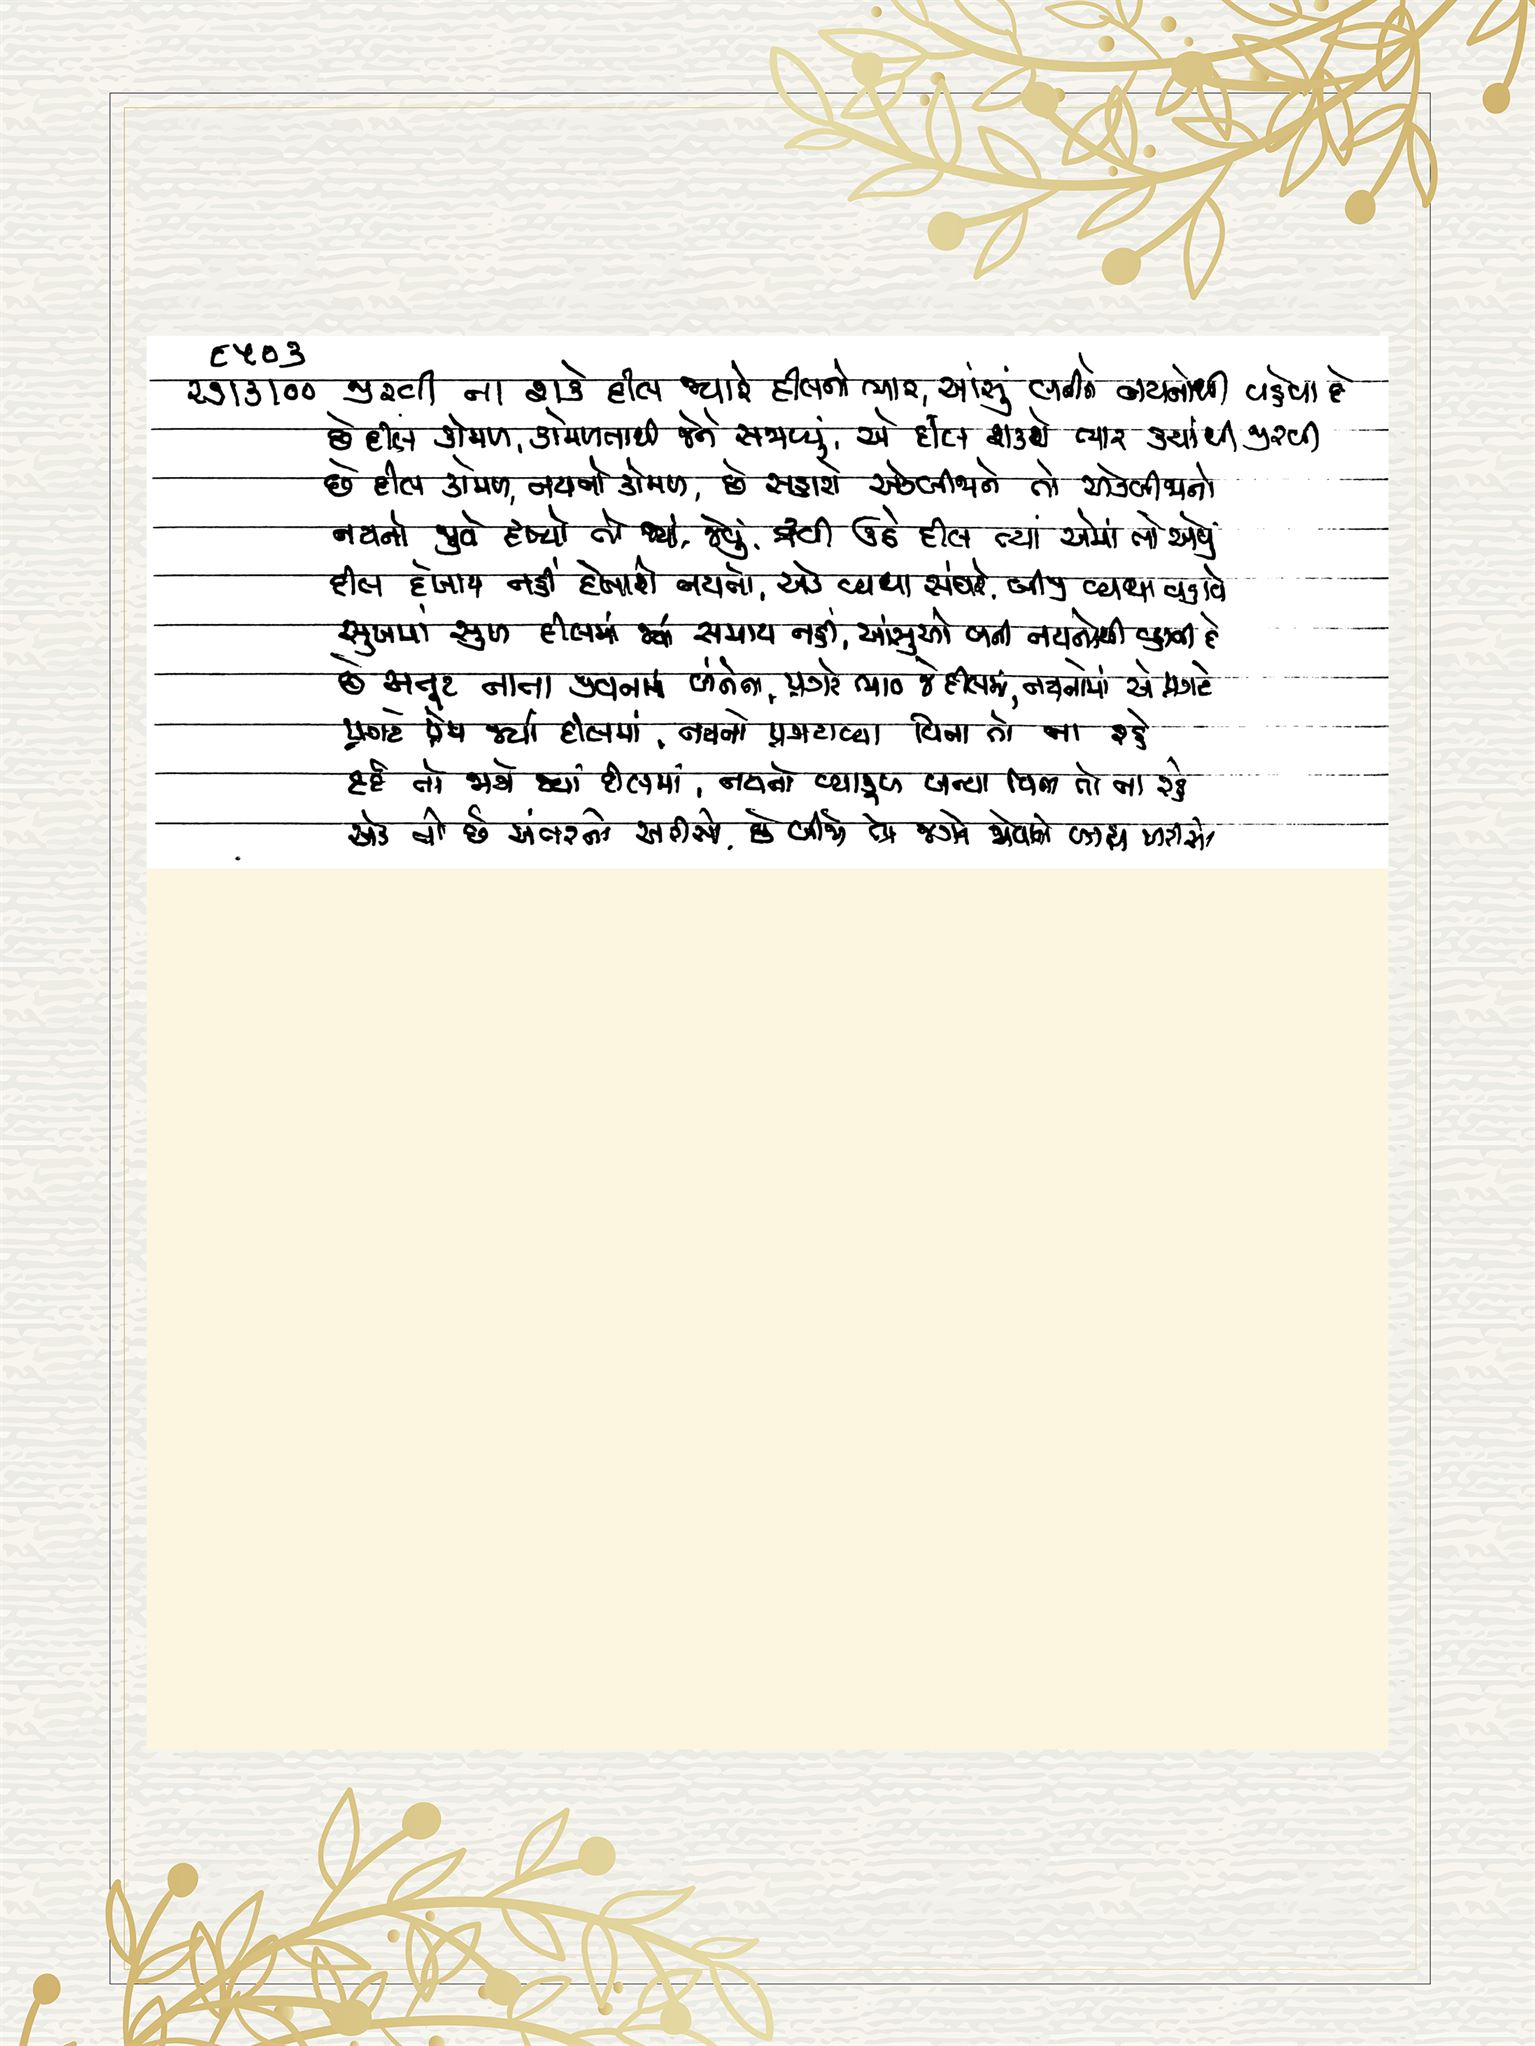 ૮૫૦૩
૨૭।૩।૦૦ જીરવી ના શકે દીલ જ્યારે દીલનો ભાર, આંસું બનીને નયનોથી વહેવા દે
છે દીલ કોમળ, કોમળતાથી જેને સજાવ્યું, એ દીલ શકશે ભાર ક્યાંથી જીરવી
છે દીલ કોમળ, નયનો કોમળ, છે સહારો એકબીજાને તો એકબીજાનો
નયનો જુવે દૃશ્યો તો જ્યાં, જેવું, દ્રવી ઉઠે દીલ ત્યાં એમાં તો એવું
દીલ દેખાય નહીં દેખાશે નયનો, એક વ્યથા સંઘરે, બીજુ વ્યથા વહાવે
સુખમાં સુખ દીલમાં જ્યાં સમાય નહીં, આંસુઓ બની નયનોથી વહાવી દે
છે અતૂટ નાતા જીવનમાં બંનેના, પ્રગટે ભાવ જે દીલમાં, નયનોમાં એ પ્રગટે
પ્રગટે પ્રેમ જ્યાં દીલમાં, નયનો પ્રગટાવ્યા વિના તો ના રહે
દર્દ તો જાગે જ્યાં દીલમાં, નયનો વ્યાકુળ બન્યા વિના તો ના રહે
એક તો છે અંતરનો અરીસો, છે બીજો તો જગને જોવાનો બાહ્ય અરીસો